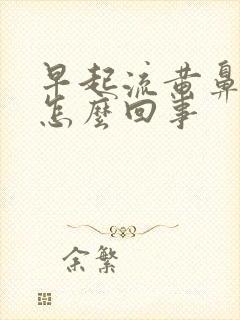 早起流黄鼻
怎麼回事
余繁